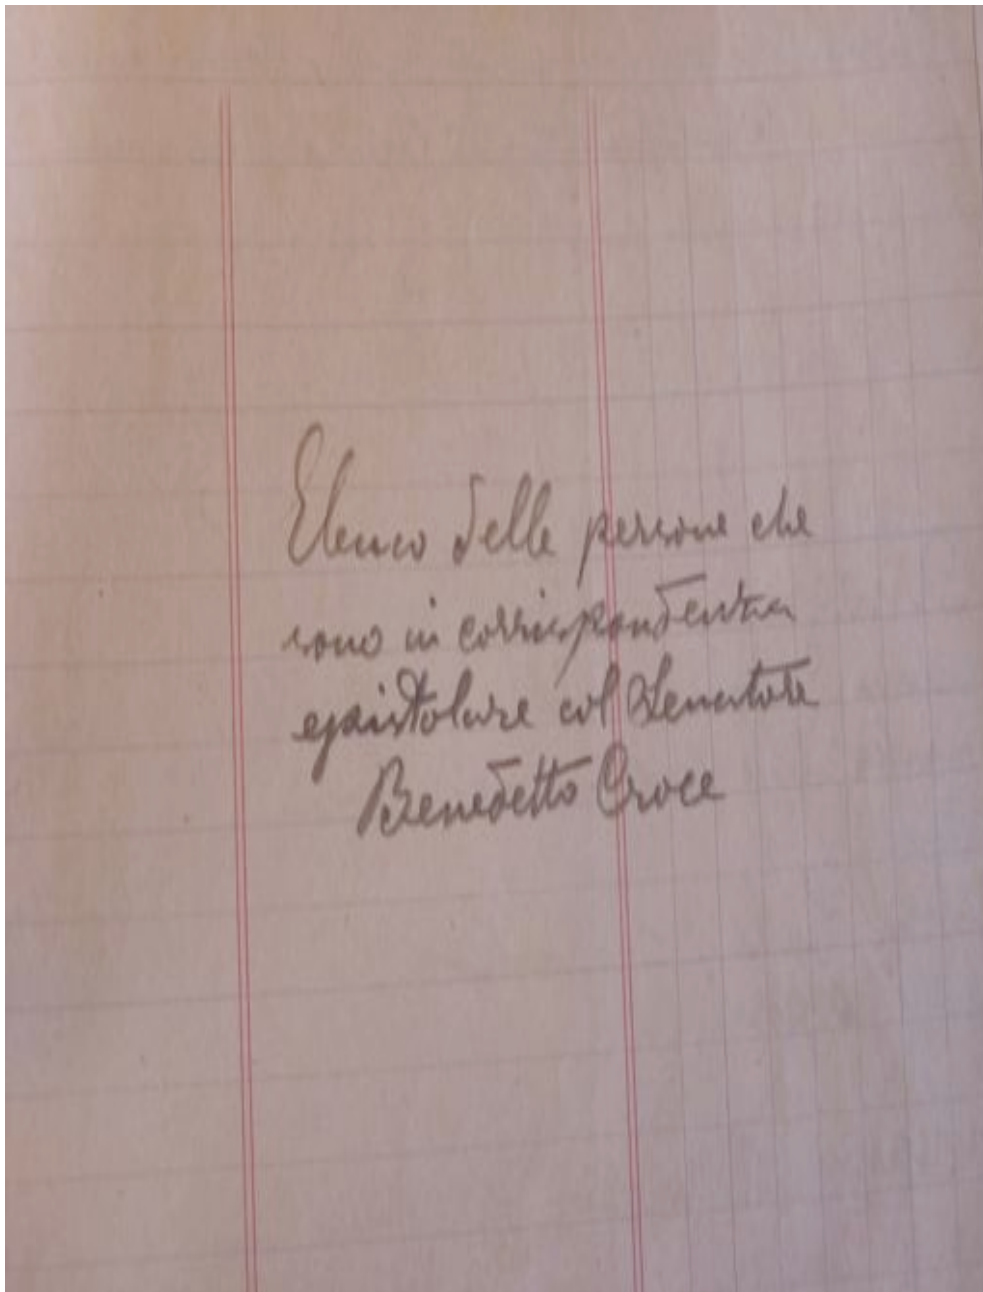 Elenco delle persone che
sono in corrispondenza
epistolare col Senatore
Benedetto Croce